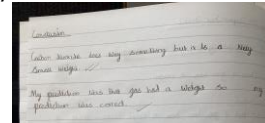 Conclusion
Carbon dioxide does weigh something but is a very
small weight
My prediction was that gas had a weight so my
prediction was correct.